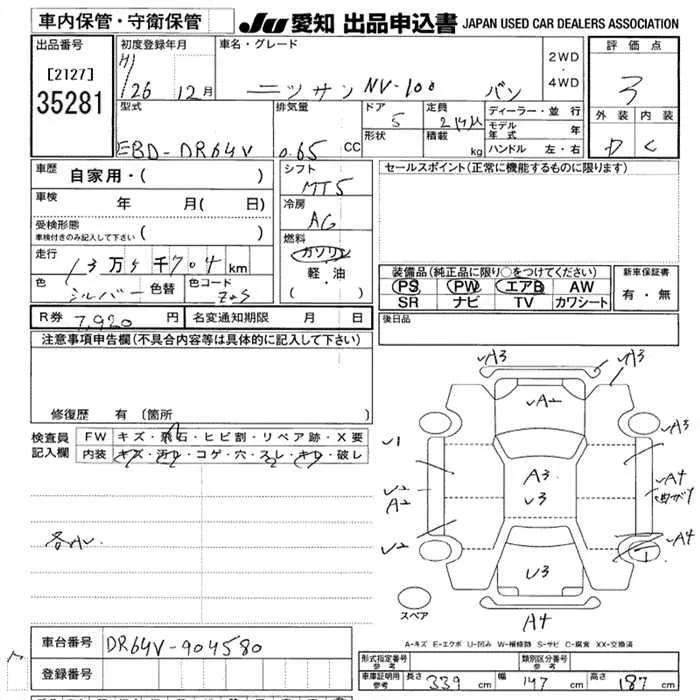 車内保管・守衛保管 JU 愛知 出品申込書 JAPAN USED CAR DEALERS ASSOCIATION
出品番号 初度登録年月 車名・グレード 2WD・4WD 評価点
[2127] H 26 12月 ニッサン NV-100 バン 3
35281 型式 排気量 ドア 定員 ディーラー・並行 外装 内装
EBD-DR64V 0.65 CC 5 形状 積載 kg モデル年式 年 D C
ハンドル 左・右
車歴 自家用・( ) シフト MT5 セールスポイント(正常に機能するものに限ります)
車検 年 月( 日) 冷房 AC
受検形態 車検付きのみ記入して下さい ( ) 燃料
走行 13万5千704km ガソリン
色 シルバー 色替 色コード Z2S 軽・油 ( )
装備品(純正品に限り○をつけてください) 新車保証書
PS PW エアB AW 有・無
SR ナビ TV カワシート
R券 7,920 円 名変通知期限 月 日 後日品
注意事項申告欄(不具合内容等は具体的に記入して下さい)
修復歴 有 (箇所
検査員記入欄 FW キズ・飛石・ヒビ割・リペア跡・X要
内装 キズ・汚レ・コゲ・穴・スレ・キレ・破レ
A3 A3
A2
A3
U1
A3 A4
U2 U3 曲がり
A2
U2 A4
U3 1
スペア A4
A-キズ E-エクボ U-凹み W-補修跡 S-サビ C-腐食 XX-交換済
車台番号 DR64V-904580
登録番号
形式指定番号 参考 類別区分番号 参考
車庫証明用 参考 長さ 339 cm 幅 147 cm 高さ 187 cm